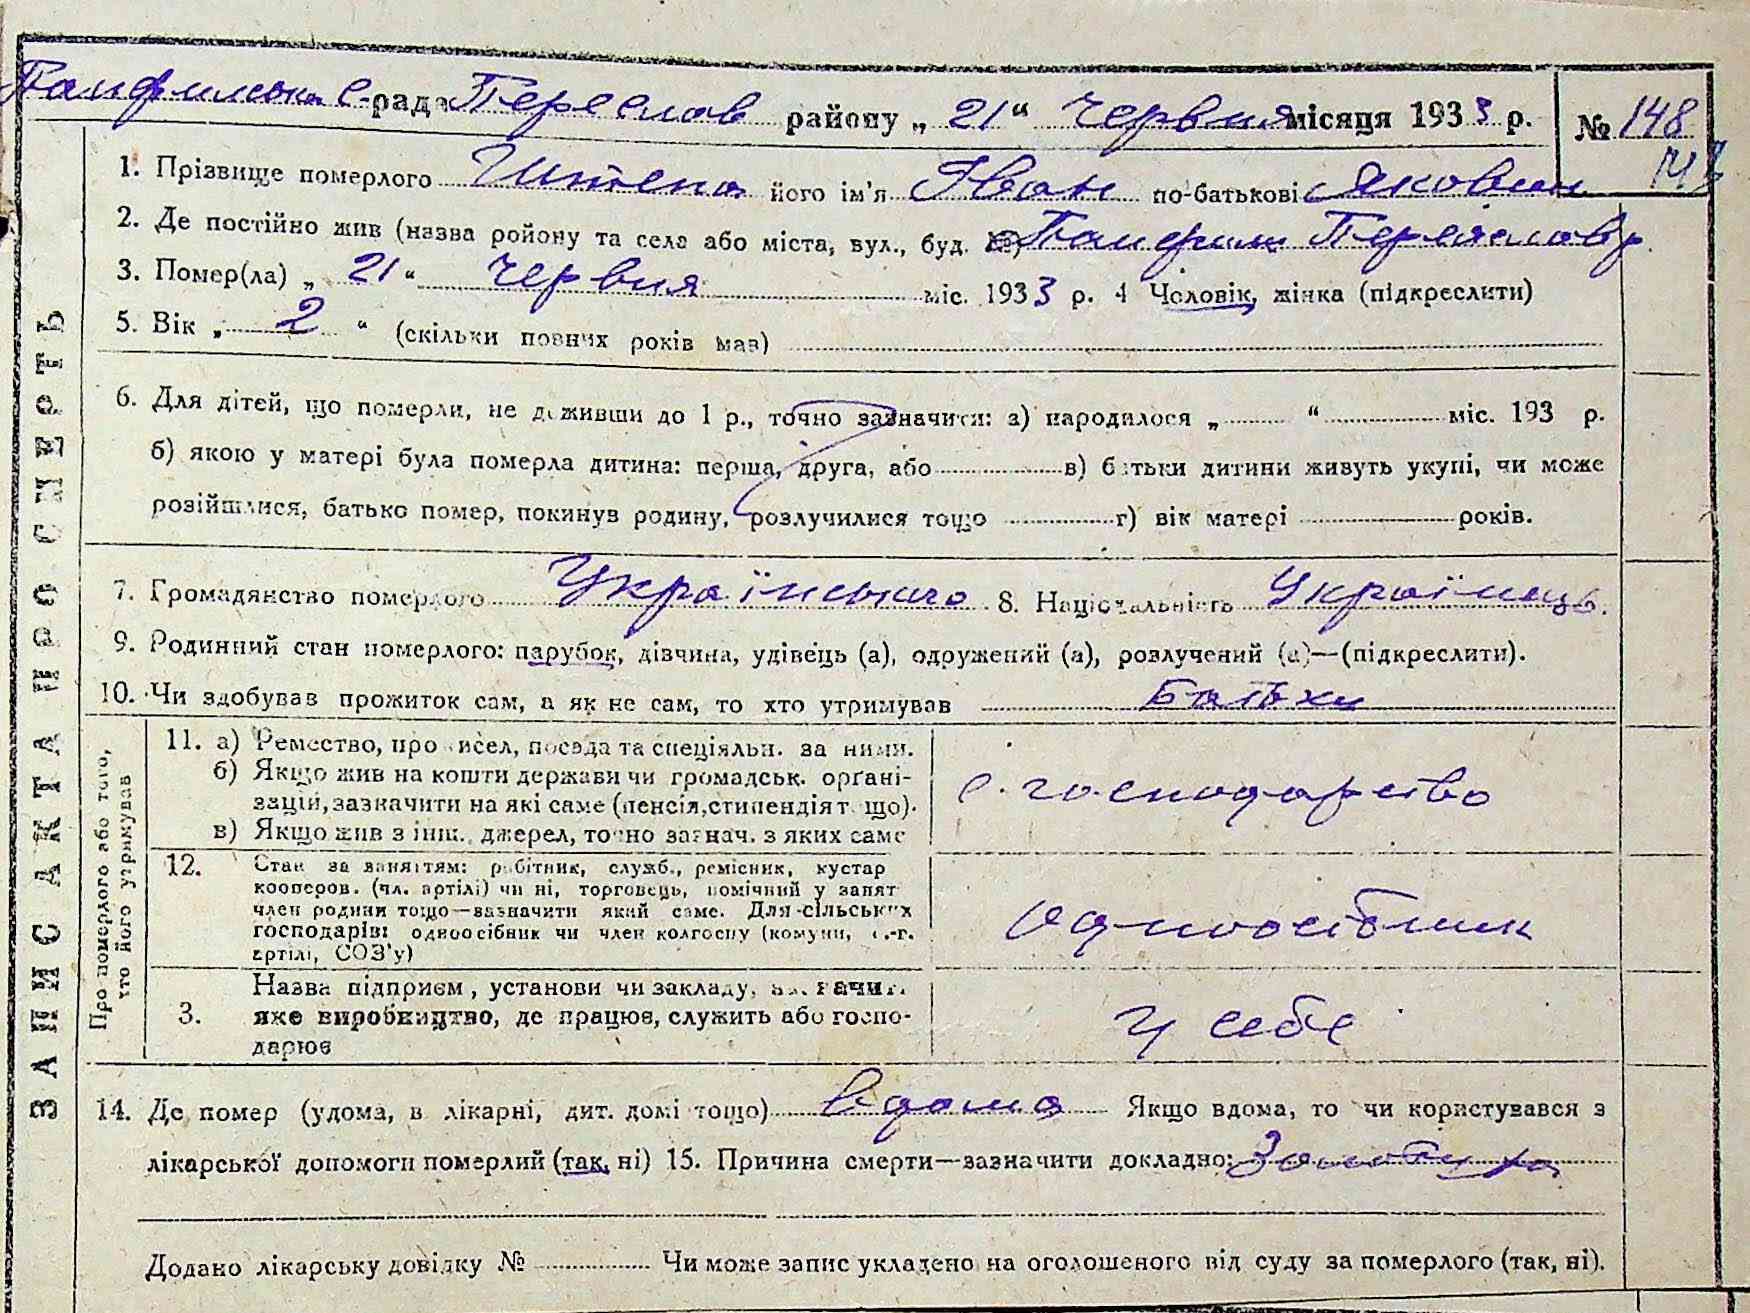 Панфильська с-рада Переяслав району „ 21 “ червня місяця 1933 р. № 148
1. Прізвище померлого його ім'я Іван по-батькові Якович
2. Де постійно жив (назва ройону та села або міста, вул., буд. №) Панфили Переяслав р.
3. Помер(ла) „ 21 “ червня міс. 1933 р. 4 Чоловік, жінка (підкреслити)
5. Вік „ 2 “ (скільки повних років мав)
6. Для дітей, що померли, не доживши до 1 р., точно зазначити: а) народилося „ “ міс. 193 р.
б) якою у матері була померла дитина: перша, друга, або в) батьки дитини живуть укупі, чи може
розійшлися, батько помер, покинув родину, розлучилися тощо г) вік матері років.
7. Громадянство померлого Українського 8. Національність Українець.
9. Родинний стан померлого: парубок, дівчина, удівець (а), одружений (а), розлучений (а)—(підкреслити).
10. Чи здобував прожиток сам, а як не сам, то хто утримував Батьки
ЗАПИС АКТА ПРО СМЕРТЬ
Про померлого або того, хто його утримував
11. а) Ремество, промисел, посада та спеціяльн. за ними.
б) Якщо жив на кошти держави чи громадськ. організацій, зазначити на які саме (пенсія, стипендія т. що).
в) Якщо жив з інш. джерел, точно зазнач. з яких саме
с. господарство
12. Стан за заняттям: робітник, служб., ремісник, кустар
кооперов. (чл. артілі) чи ні, торговець, помічний у занят
член родини тощо—зазначити який саме. Для сільських
господарів: одноосібник чи член колгоспу (комуни, с.-г.
артілі, СОЗ'у)
одноосібник
3. Назва підприєм, установи чи закладу, зазначити
яке виробництво, де працює, служить або господарює
у себе
14. Де помер (удома, в лікарні, дит. домі тощо) вдома Якщо вдома, то чи користувався з
лікарської допомоги померлий (так, ні) 15. Причина смерти—зазначити докладно:
Додано лікарську довідку № Чи може запис укладено на оголошеного від суду за померлого (так, ні).